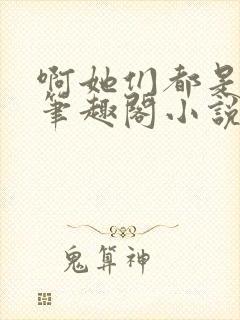 啊她们都是
筆趣閣小說
鬼算神